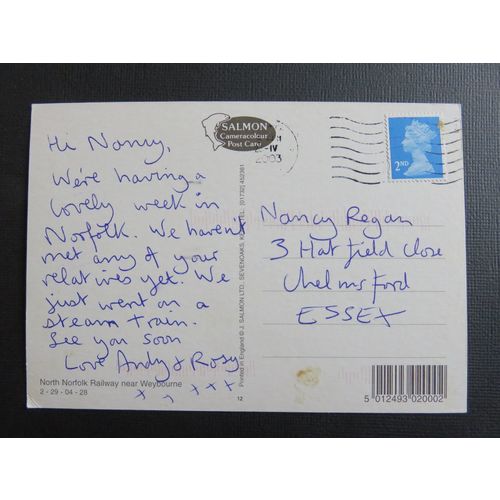 SALMON
Cameracolour
Post Card
IV
2003
2ND
Hi Nancy,
We're having a
lovely week in
Norfolk. We haven't
met any of your
relatives yet. We
just went on a
steam train.
See you soon
Love Andy & Rosy
x x x x x
North Norfolk Railway near Weybourne
2 - 29 - 04 - 28
Printed in England © J. SALMON LTD., SEVENOAKS, KENT. TEL: (01732) 452381
12
Nancy Regan
3 Hatfield Close
Chelmsford
ESSEX
5 012493 020002